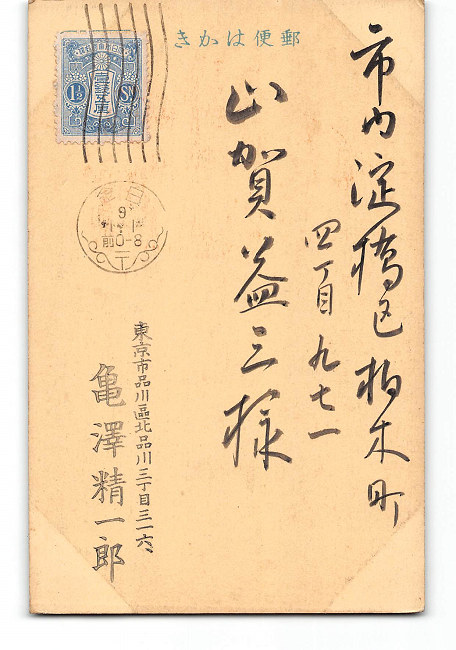 郵便はかき
市内淀橋区柏木町
四丁目九七一
山賀益三様
1½ Sn
目黒
9
前0-8
東京市品川區北品川三丁目三一六、
亀澤精一郎